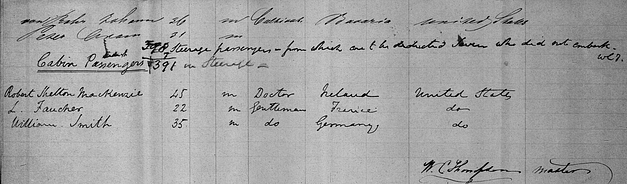 Johann 26 m Bavaria United States
Peter 21 m
398 Steerage passengers - from which are to be deducted seven who did not embark
Cabin Passengers 391 in Steerage =
W.C.T.
Robert Shelton MacKenzie 45 m Doctor Ireland United States
L. Faucher 22 m Gentleman France do
William Smith 35 m do Germany do
W. C. Thompson master